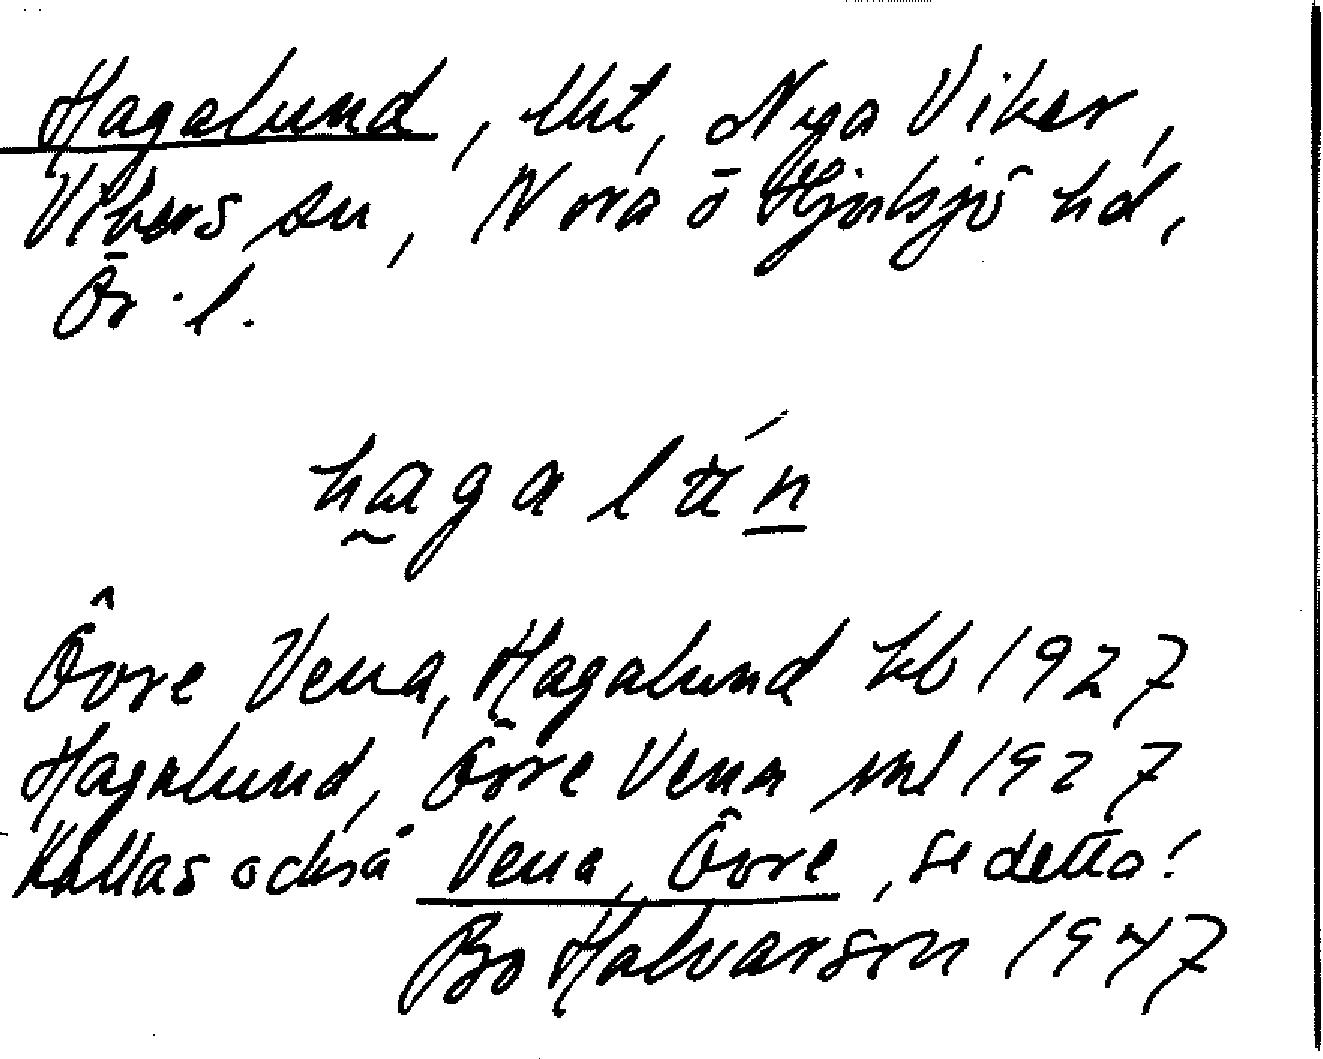 Hagalund, lht, Nya Viker,
Vikers sn, Nora o Hjulsjö hd,
Ör. l.
hagalún
Övre Vena, Hagalund kb 1927
Hagalund, Övre Vena ml 1927
Kallas också Vena, Övre, se detta!
Bo Halvarson 1947